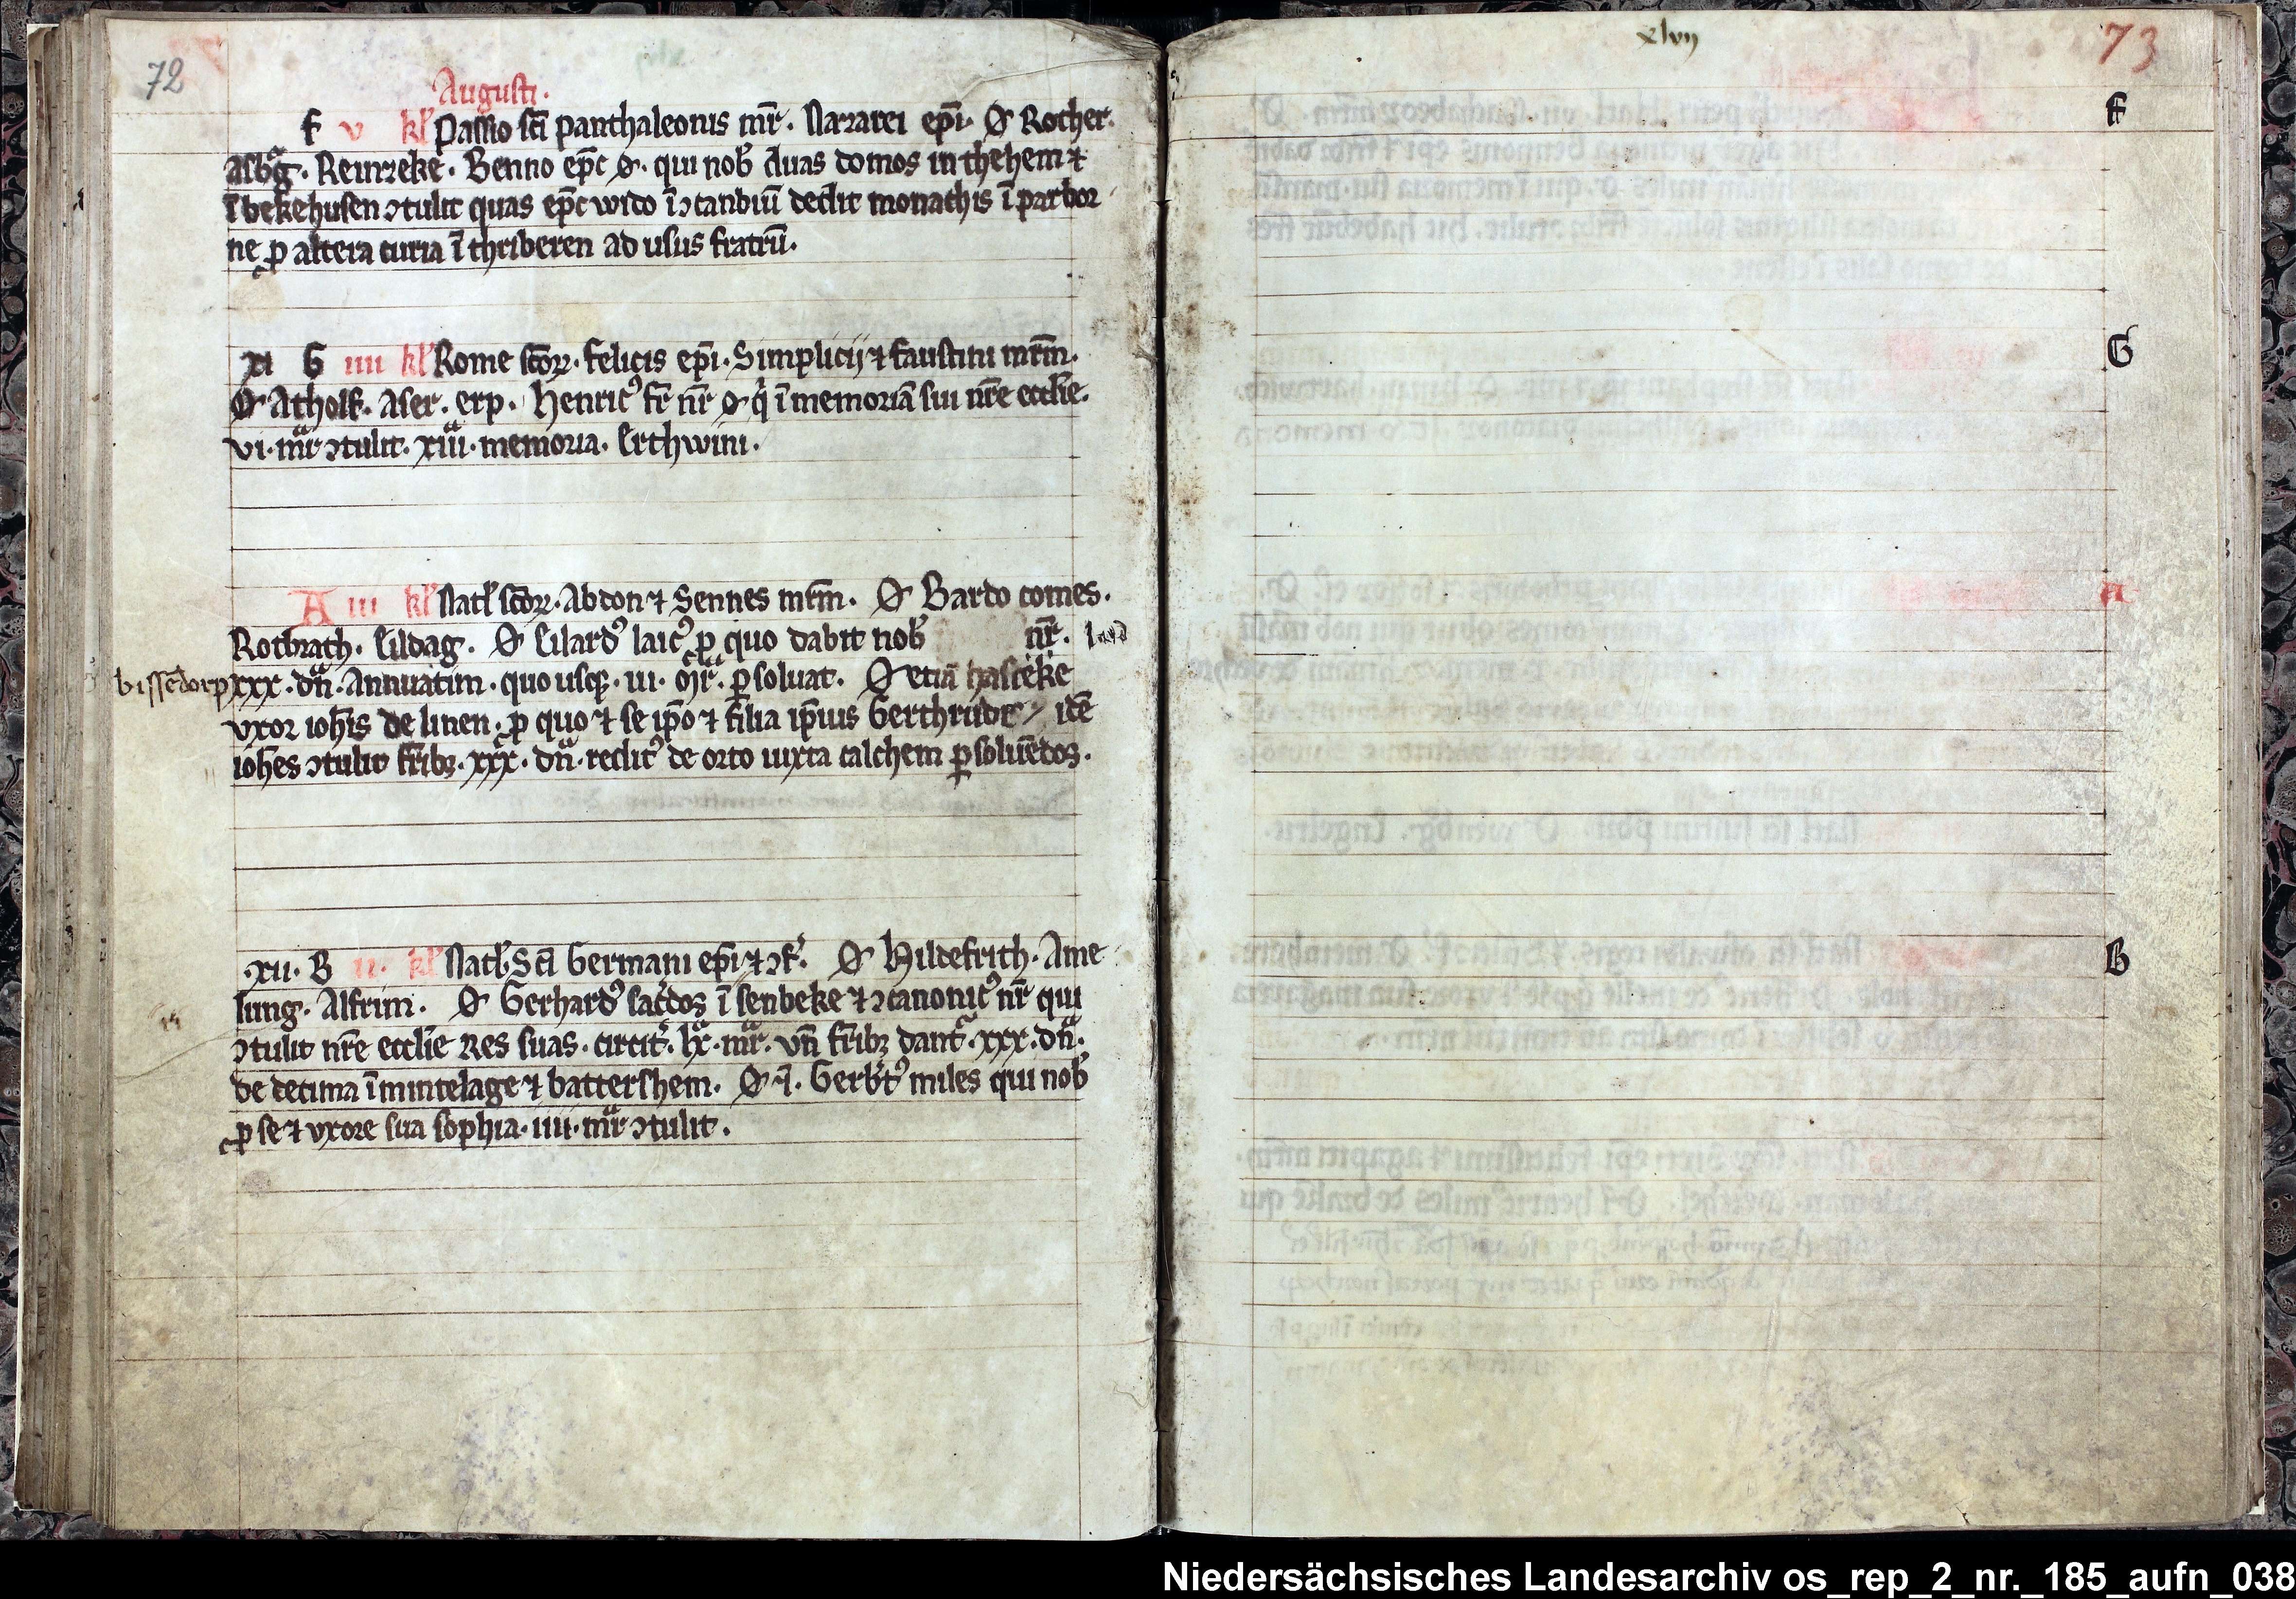 72
Augusti.
F v kl̕ Passio sc̄i panthaleonis mr̄. Nazarei ep̄i. O Rother.
Asbg̅. Reinzeke. Benno ep̄c o. qui nob̕ duas domos in thehem ⁊
ī bekehusen ꝯtulit quas ep̄c wido ī ꝯcanbiū dedit monachis ī parbor
ne ꝓ altera curia ī thriberen ad usus fratrū.
xi G iiii kl̕ Rome sc̄oꝝ. felicis ep̄i. Simplicij ⁊ faustini mr̄m.
O Atholf. Aser. erp. Henricꝰ fr̄ nr̄ o qͥ ī memoriā sui nr̄e eccl̄ie.
vi. mr̄ ꝯtulit. xiii. memoria. Erthwini.
A iii kl̕ Natl̕ sc̄oꝝ. Abdon ⁊ Sennes mr̄m. O Bardo comes.
Rotbrath. Eildag. O Eilardꝰ laicꝰ ꝓ quo dabit nob̕ nr̄.
bissēdorp xxx. dn̄. Annuatim. quo usqꝫ. iii. mr̄. ꝑsoluat. O etiā hasceke
vxor ioh̄is de linen. ꝓ quo ⁊ se ip̄o ⁊ filia ip̄ius Gerthrude idē
ioh̄es ꝯtulit fr̄ibꝫ. xxx. dn̄. redditꝰ de orto iuxta calchem ꝑsoluēdos.
.xii. B ii. kl̕ Natl̕. Sc̄i Germani ep̄i ⁊ ꝯf̕. O Hildefrith. Ame
lung. Alfrim. O Gerhardꝰ sac̕dos ī senbeke ⁊ ꝯcanonicꝰ nr̄ qui
ꝯtulit nr̄e eccl̄ie res suas. circit̕. lx. mr̄. vn̄ fr̄ibꝫ dant̕. xxx. dn̄.
de decima ī mintelage ⁊ battershem. O ⁊. Gerb̕tꝰ miles qui nob̕
ꝓ se ⁊ vxore sua sophia. iiii. mr̄ ꝯtulit.
xlvij
73
F
G
A
B
Niedersächsisches Landesarchiv os_rep_2_nr._185_aufn_038